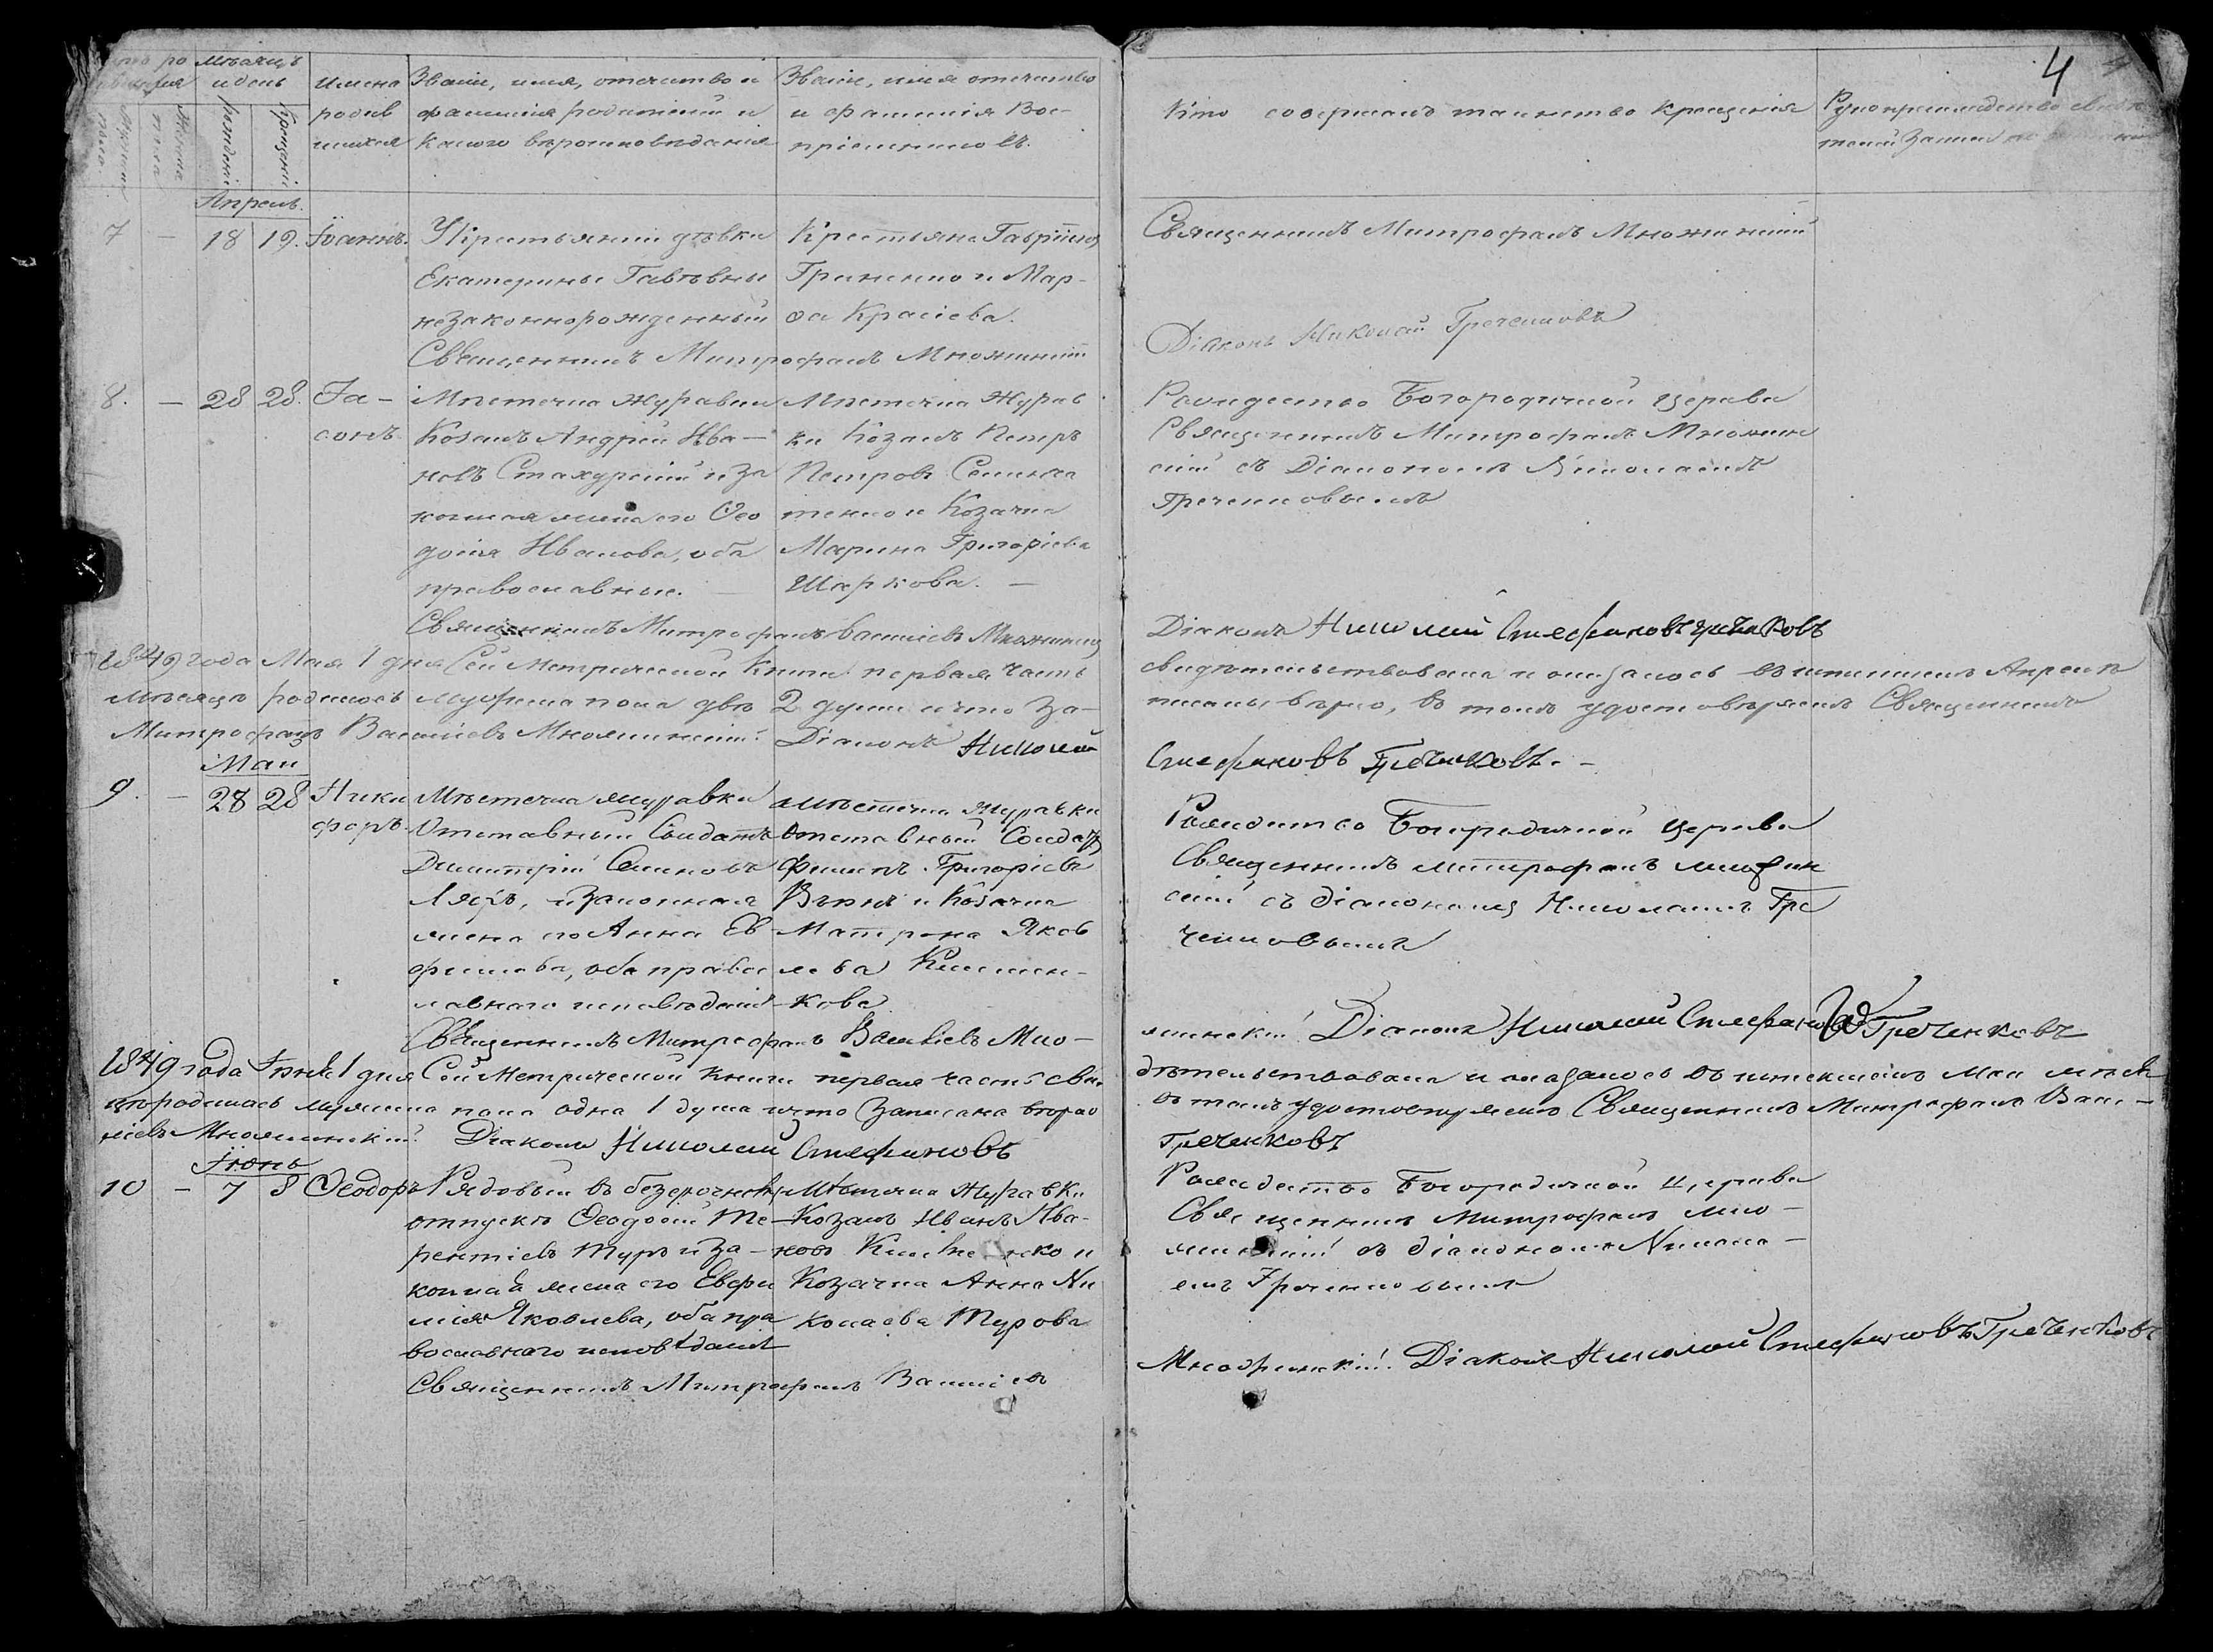 4
мѣсяцъ
и день
Имена
родив
шихся
Званіе, имя, отечество и
фамилія родителей и
какого вѣроисповѣданія
Званіе, имя отечество
и фамилія Вос-
пріемниковъ.
Кто совершалъ таинство крещенія
Рукоприкладство свидѣ
телей записи по желанію
рожденія
крещенія
Апрель.
7 — 18 19. Іоаннъ.
У Крестьянки дѣвки
Екатерины
незаконнорожденный
Священникъ Митрофанъ Множинскій
Крестьяне Гавріилъ
Гриненко и Мар-
ѳа Красіева.
Священникъ Митрофанъ Множинскій
Діаконъ Николай Греченковъ
8. — 28 28. Іа-
сонъ
Мѣстечка Журавки
Козакъ Андрей Ива-
новъ Стахурскій и за
конная жена его Ѳео
досія Иванова, оба
православные.
Мѣстечка Журав
ки Козакъ Петръ
Петровъ
и Козачка
Марина Григоріева
Шаркова. —
Рождество Богородичной церкви
Священникъ Митрофанъ Множин
скій съ Діакономъ Николаемъ
Греченковымъ
Священникъ Митрофанъ Василіевъ Множинскій
Діаконъ Николай Стефановъ Греченковъ
1849 года Мая 1 дня Сей Метрической Книги первая часть
свидѣтельствована и оказалось въ истекшемъ Апрелѣ
мѣсяцѣ родилось мужеска пола двѣ 2 души и что за-
писаны вѣрно, въ томъ удостовѣряемъ Священникъ
Митрофанъ Василіевъ Множинскій. Діаконъ Николай
Стефановъ Греченковъ. —
Май
9. — 28 28 Ники
форъ
Мѣстечка Журавки
Отставный Солдатъ
Димитрій Семеновъ
и законная
жена его Анна Ев
фимова, оба право
славнаго исповѣданія
Мѣстечка Журавки
Отставный Солдатъ
Филипъ Григоріевъ
и Козачка
Матрона Яков
лева
кова
Рождество Богородичной церкви
Священникъ Митрофанъ Множин
скій съ Діакономъ Николаемъ Гре
ченковымъ
Священникъ Митрофанъ Василіевъ Мно-
жинскій. Діаконъ Николай Стефановъ Греченковъ
1849 года Іюня 1 дня Сей Метрической книги первая часть сви
дѣтельствована и оказалось въ истекшемъ Маи мѣся
цѣ родилась мужеска пола одна 1 душа и что записана вѣрно
въ томъ удостовѣряемъ Священникъ Митрофанъ Васи-
ліевъ Множинскій. Діаконъ Николай Стефановъ
Греченковъ
Іюнь
10 — 7 8 Ѳеодоръ
Рядовый въ безсрочномъ
отпускѣ Ѳеодосій Те-
рентіевъ Туръ и за-
конная жена его Евфи
мія Яковлева, оба пра
вославнаго исповѣданія
Мѣстечка Журавки
Козакъ Иванъ Ива-
новъ и
Козачка Анна Ни
колаева Турова
Рождество Богородичной церкви
Священникъ Митрофанъ Мно-
жинскій съ Діакономъ Никола-
емъ Греченковымъ
Священникъ Митрофанъ Василіевъ
Множинскій. Діаконъ Николай Стефановъ Греченковъ